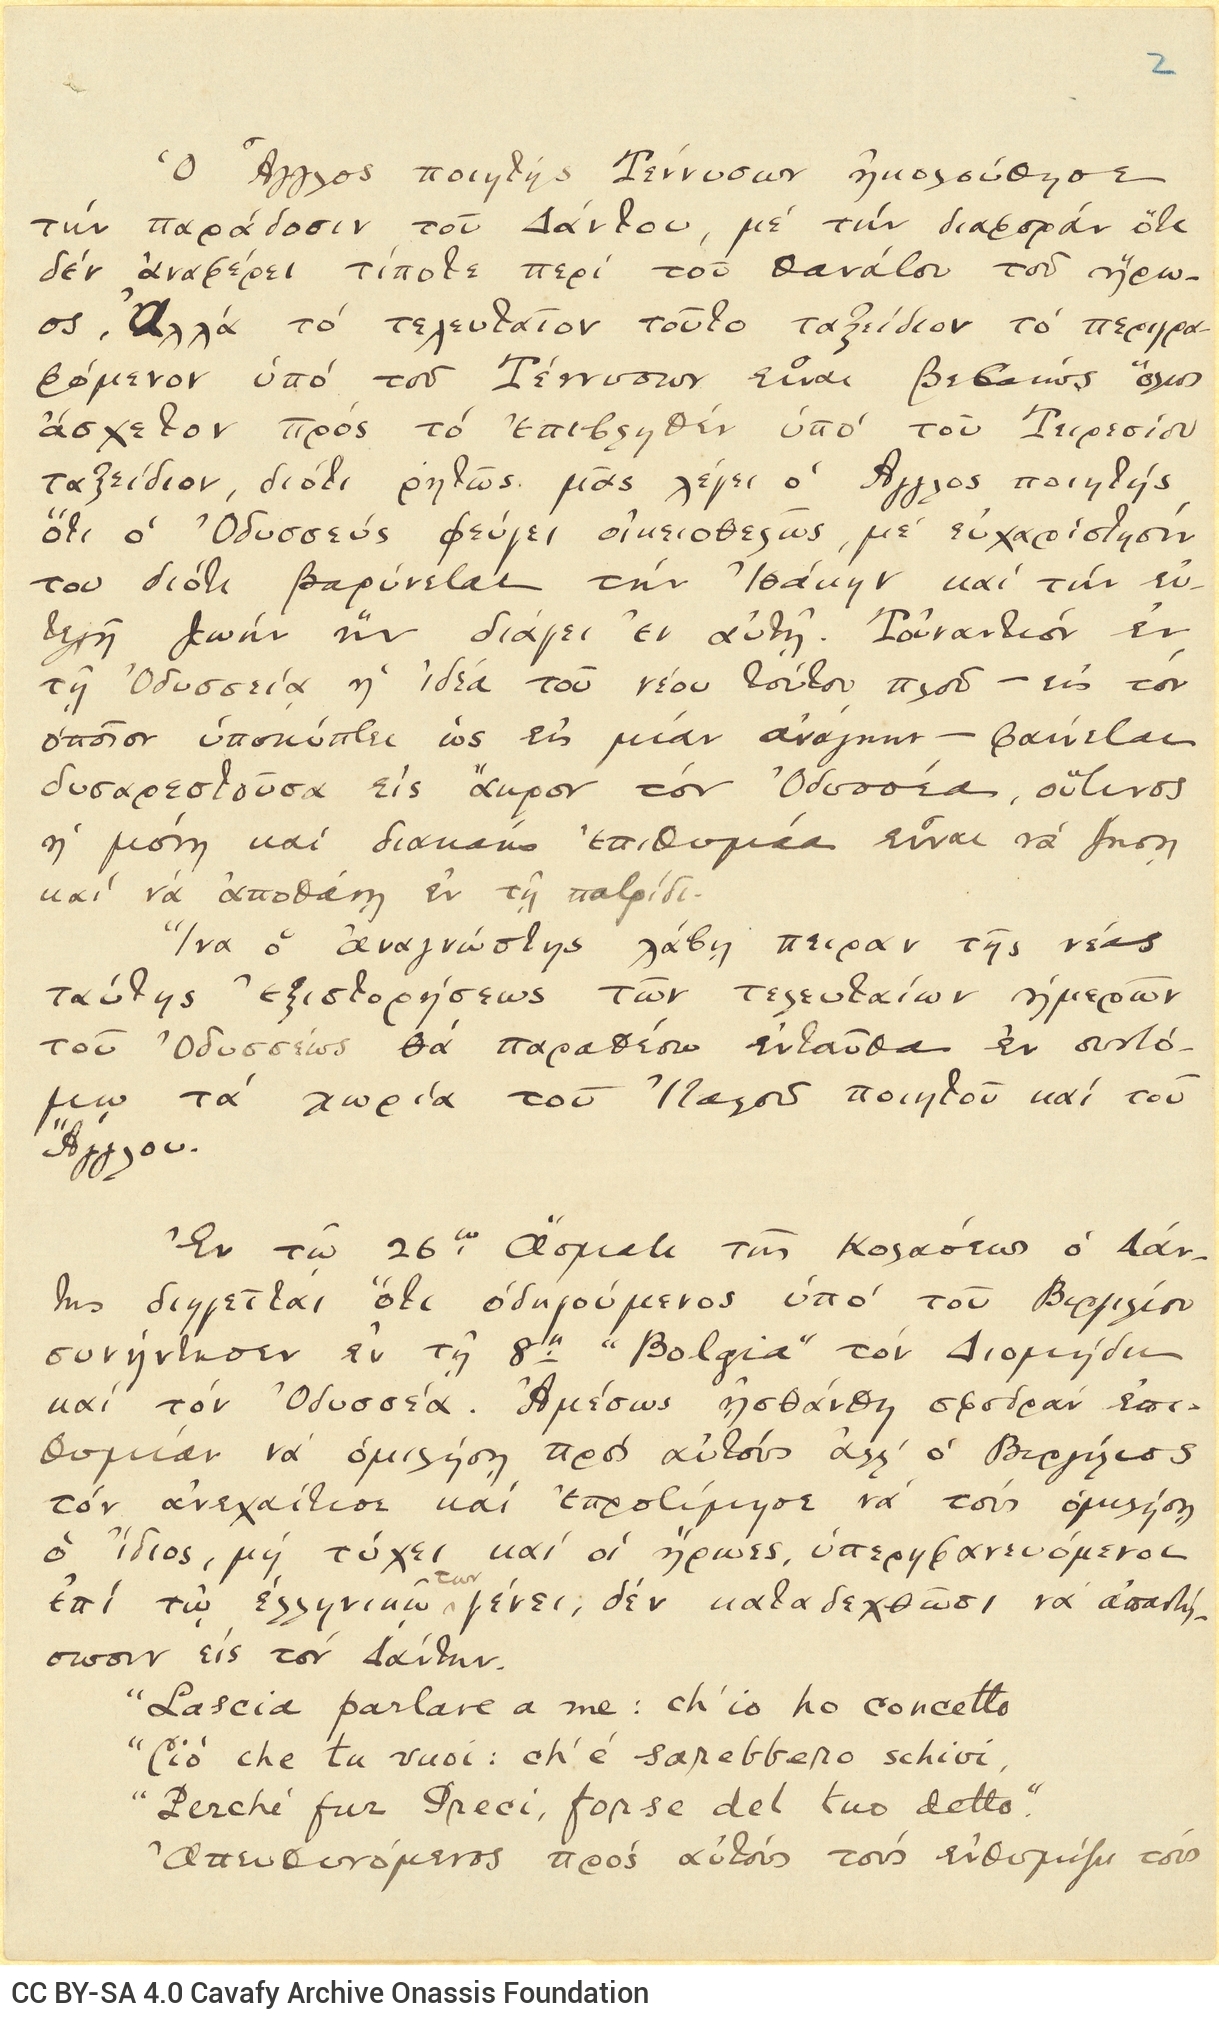 2
Ὁ Ἄγγλος ποιητής Τέννυσων ἠκολούθησε
τήν παράδοσιν τοῦ Δάντου, μέ τήν διαφοράν ὅτι
δέν ἀναφέρει τίποτε περί τοῦ θανάτου τοῦ ἥρω-
ος. Ἀλλά τό τελευταῖον τοῦτο ταξείδιον τό περιγρα-
φόμενον ὑπό τοῦ Τέννυσων εἶναι βεβαίως ὅλως
ἄσχετον πρός τό ἐπιβληθέν ὑπό τοῦ Τειρεσίου
ταξείδιον, διότι ῥητῶς μᾶς λέγει ὁ Ἄγγλος ποιητής
ὅτι ὁ Ὀδυσσεύς φεύγει οἰκειοθελῶς, μέ εὐχαρίστησίν
του διότι βαρύνεται τήν Ἰθάκην καί τήν εὐ-
τελῆ ζωήν ἥν διάγει ἐν αὐτῇ. Τοὐναντίον ἐν
τῇ Ὀδυσσείᾳ ἡ ἰδέα τοῦ νέου τούτου πλοῦ — εἰς τόν
ὁποῖον ὑποκύπτει ὡς εἰς μίαν ἀνάγκην — φαίνεται
δυσαρεστοῦσα εἰς ἄκρον τόν Ὀδυσσέα, οὕτινος
ἡ μόνη καί διακαής ἐπιθυμία εἶναι νά ζήσῃ
καί νά ἀποθάνῃ ἐν τῇ πατρίδι.
Ἵνα ὁ ἀναγνώστης λάβῃ πεῖραν τῆς νέας
ταύτης ἐξιστορήσεως τῶν τελευταίων ἡμερῶν
τοῦ Ὀδυσσέως θά παραθέσω ἐνταῦθα ἐν συντό-
μῳ τά χωρία τοῦ Ἰταλοῦ ποιητοῦ καί τοῦ
Ἄγγλου.
Ἐν τῷ 26ῳ ᾄσματι τῆς Κολάσεως ὁ Δάν-
της διηγεῖται ὅτι ὁδηγούμενος ὑπό τοῦ Βιργιλίου
συνήντησεν ἐν τῇ 8ῃ "Bolgia" τόν Διομήδη
καί τόν Ὀδυσσέα. Ἀμέσως ᾐσθάνθη σφοδράν ἐπι-
θυμίαν νά ὁμιλήσῃ πρός αὐτούς ἀλλ' ὁ Βιργίλιος
τόν ἀνεχαίτισε καί ἐπροτίμησε νά τούς ὁμιλήσῃ
ὁ ἴδιος, μή τύχει καί οἱ ἥρωες, ὑπερηφανευόμενοι
ἐπί τῷ ἑλληνικῷ των γένει, δέν καταδεχθῶσι νά ἀπαντή-
σωσιν εἰς τόν Δάντην.
"Lascia parlare a me: ch'io ho concetto
"Ciò che tu vuoi: ch'é sarebbero schivi,
"Perché fur Greci, forse del tuo detto."
Ἀπευθυνόμενος πρός αὐτούς τούς ἐνθυμίζει τούς
CC BY-SA 4.0 Cavafy Archive Onassis Foundation